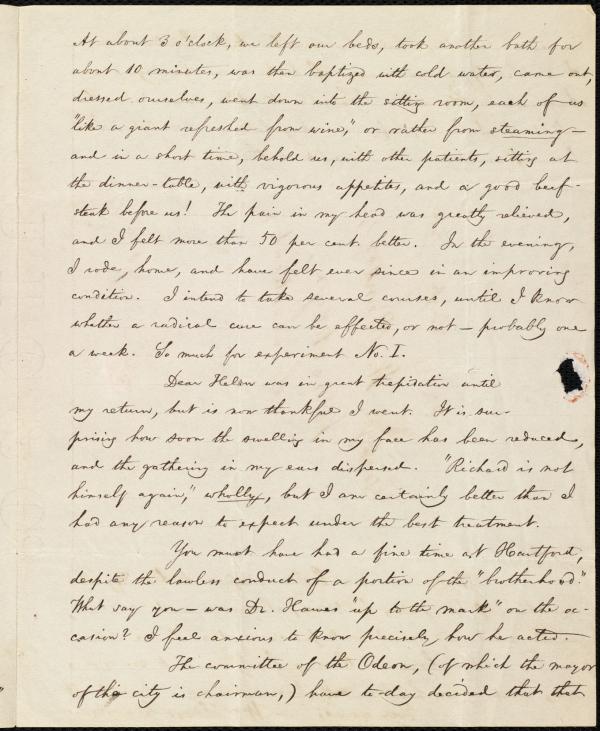 At about 3 o'clock, we left our beds, took another bath for
about 10 minutes, was then baptized with cold water, came out,
dressed ourselves, went down into the sitting room, each of us
"like a giant refreshed from wine," or rather from steaming—
and in a short time, behold us, with other patients, sitting at
the dinner-table, with vigorous appetites, and a good beef-
steak before us! The pain in my head was greatly relieved,
and I felt more than 50 per cent. better. In the evening,
I rode, home, and have felt ever since in an improving
condition. I intend to take several courses, until I know
whether a radical cure can be effected, or not — probably one
a week. So much for experiment No. I.
Dear Helen was in great trepidation until
my return, but is now thankful I went. It is sur-
prising how soon the swelling in my face has been reduced,
and the gathering in my ears dispersed. "Richard is not
himself again," wholly, but I am certainly better than I
had any reason to expect under the best treatment.
You must have had a fine time at Hartford,
despite the lawless conduct of a portion of the "brotherhood."
What say you — was Dr. Hawes "up to the mark" on the oc-
casion? I feel anxious to know precisely how he acted.
The committee of the Odeon, (of which the mayor
of the city is chairman,) have to-day decided that that